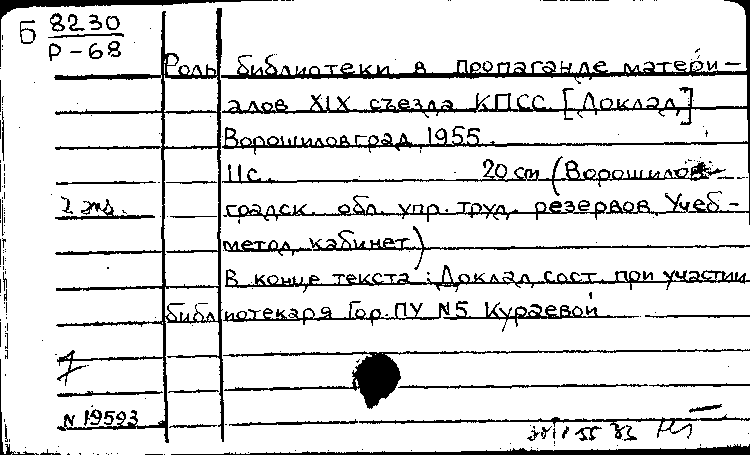 Б 8230
Р-68
Роль библиотеки в пропаганде матери-
алов XIX съезда КПСС. [Доклад]
Ворошиловград, 1955.
11с. 20 cm (Ворошилов-
2 экз. градск. обл. упр. труд. резервов. Учеб-
метод. кабинет.)
В конце текста: Доклад сост. при участии
библиотекаря Гор.ПУ N5 Кураевой
N 19593